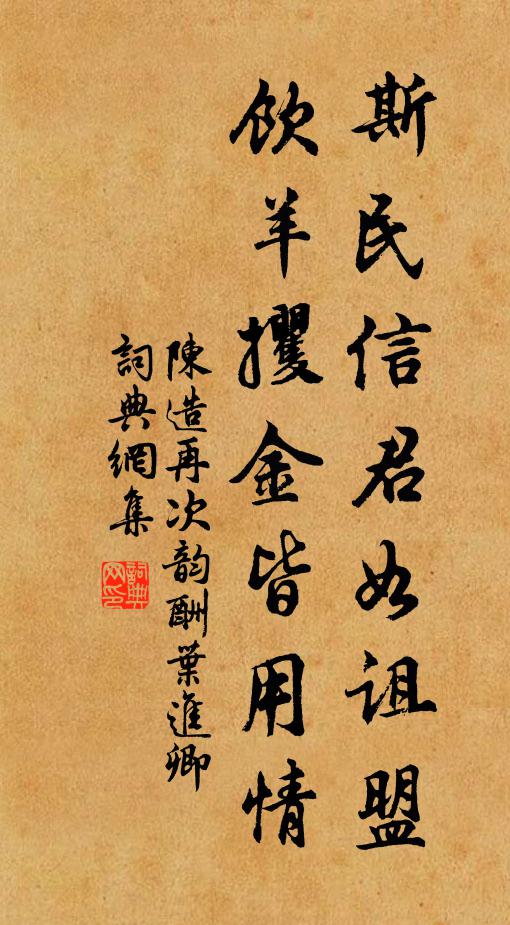 斯民信君如詛盟
飲羊攫金皆用情
陳造再次韵酬葉進卿
詞典網集
詞典网印